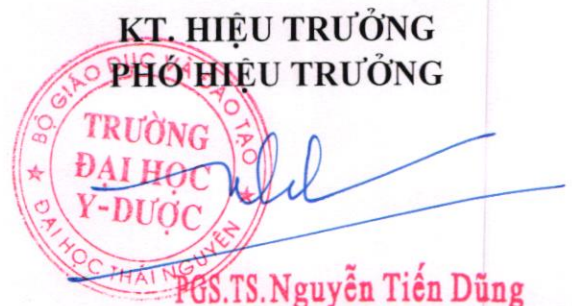 KT. HIỆU TRƯỞNG
PHÓ HIỆU TRƯỞNG
BỘ GIÁO DỤC VÀ ĐÀO TẠO
TRƯỜNG
ĐẠI HỌC
Y-DƯỢC
ĐẠI HỌC THÁI NGUYÊN
PGS.TS.Nguyễn Tiến Dũng